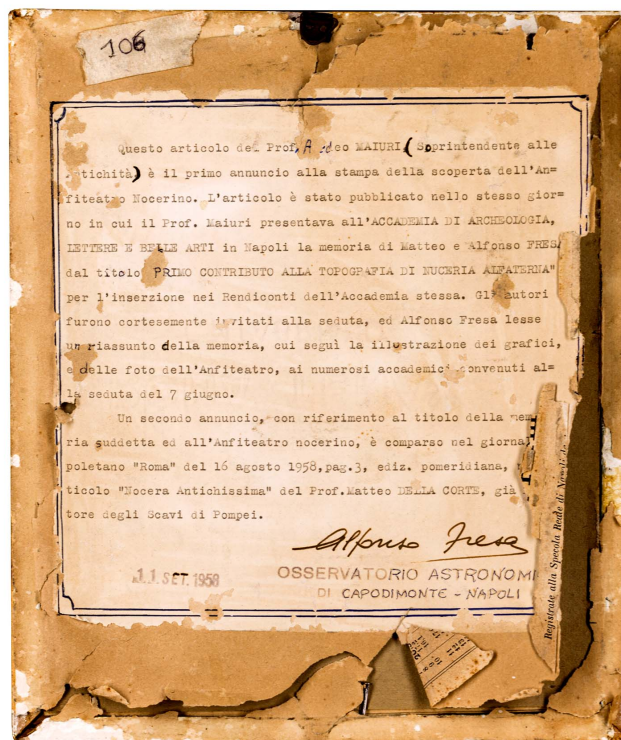 106
Questo articolo del Prof. Amedeo MAIURI (Soprintendente alle
Antichità) è il primo annuncio alla stampa della scoperta dell'An=
fiteatro Nocerino. L'articolo è stato pubblicato nello stesso gior=
no in cui il Prof. Maiuri presentava all'ACCADEMIA DI ARCHEOLOGIA,
LETTERE E BELLE ARTI in Napoli la memoria di Matteo e Alfonso FRESA
dal titolo "PRIMO CONTRIBUTO ALLA TOPOGRAFIA DI NUCERIA ALFATERNA"
per l'inserzione nei Rendiconti dell'Accademia stessa. Gli autori
furono cortesemente invitati alla seduta, ed Alfonso Fresa lesse
un riassunto della memoria, cui seguì la illustrazione dei grafici,
e delle foto dell'Anfiteatro, ai numerosi accademici convenuti al=
la seduta del 7 giugno.
Un secondo annuncio, con riferimento al titolo della mem
ria suddetta ed all'Anfiteatro nocerino, è comparso nel giornal
poletano "Roma" del 16 agosto 1958, pag.3, ediz. pomeridiana,
ticolo "Nocera Antichissima" del Prof. Matteo DELLA CORTE, già
tore degli Scavi di Pompei.
Alfonso Fresa
11. SET. 1958
OSSERVATORIO ASTRONOMI
DI CAPODIMONTE - NAPOLI
Registrate alla Specola Reale di